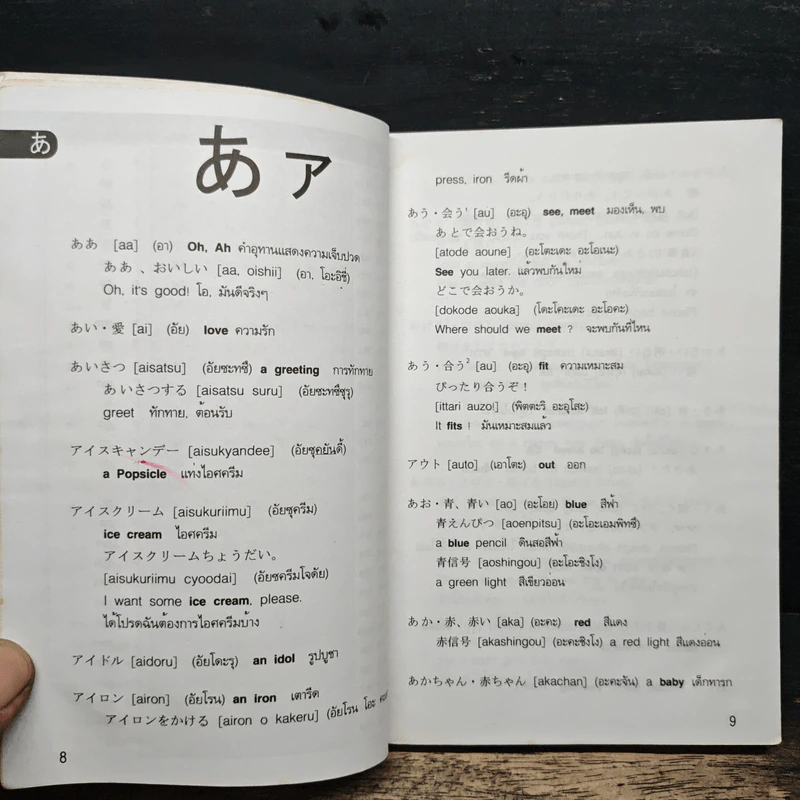 あ
あ ア
ああ [aa] (อา) Oh, Ah คำอุทานแสดงความเจ็บปวด
ああ、おいしい [aa, oishii] (อา, โอะอิชี่)
Oh, it's good! โอ, มันดีจริงๆ
あい・愛 [ai] (อัย) love ความรัก
あいさつ [aisatsu] (อัยซะทซึ) a greeting การทักทาย
あいさつする [aisatsu suru] (อัยซะทซึซุรุ)
greet ทักทาย, ต้อนรับ
アイスキャンデー [aisukyandee] (อัยซุคยันดี้)
a Popsicle แท่งไอศครีม
アイスクリーム [aisukuriimu] (อัยซุครีม)
ice cream ไอศครีม
アイスクリームちょうだい。
[aisukuriimu cyoodai] (อัยซครีมโจดัย)
I want some ice cream, please.
ได้โปรดฉันต้องการไอศครีมบ้าง
アイドル [aidoru] (อัยโดะรุ) an idol รูปบูชา
アイロン [airon] (อัยโรน) an iron เตารีด
アイロンをかける [airon o kakeru] (อัยโรน โอะ
8
press, iron รีดผ้า
あう・会う¹ [au] (อะอุ) see, meet มองเห็น, พบ
あとで会おうね。
[atode aoune] (อะโตะเดะ อะโอเนะ)
See you later. แล้วพบกันใหม่
どこで会おうか。
[dokode aouka] (โดะโคะเดะ อะโอคะ)
Where should we meet ? จะพบกันที่ไหน
あう・合う² [au] (อะอุ) fit ความเหมาะสม
ぴったり合うぞ！
[ittari auzo!] (พิตตะริ อะอุโสะ)
It fits ! มันเหมาะสมแล้ว
アウト [auto] (เอาโตะ) out ออก
あお・青、青い [ao] (อะโอย) blue สีฟ้า
青えんぴつ [aoenpitsu] (อะโอะเอมพิทซึ)
a blue pencil ดินสอสีฟ้า
青信号 [aoshingou] (อะโอะชิงโง)
a green light สีเขียวอ่อน
あか・赤、赤い [aka] (อะคะ) red สีแดง
赤信号 [akashingou] (อะคะชิงโง) a red light สีแดงอ่อน
あかちゃん・赤ちゃん [akachan] (อะคะจัน) a baby เด็กทารก
9